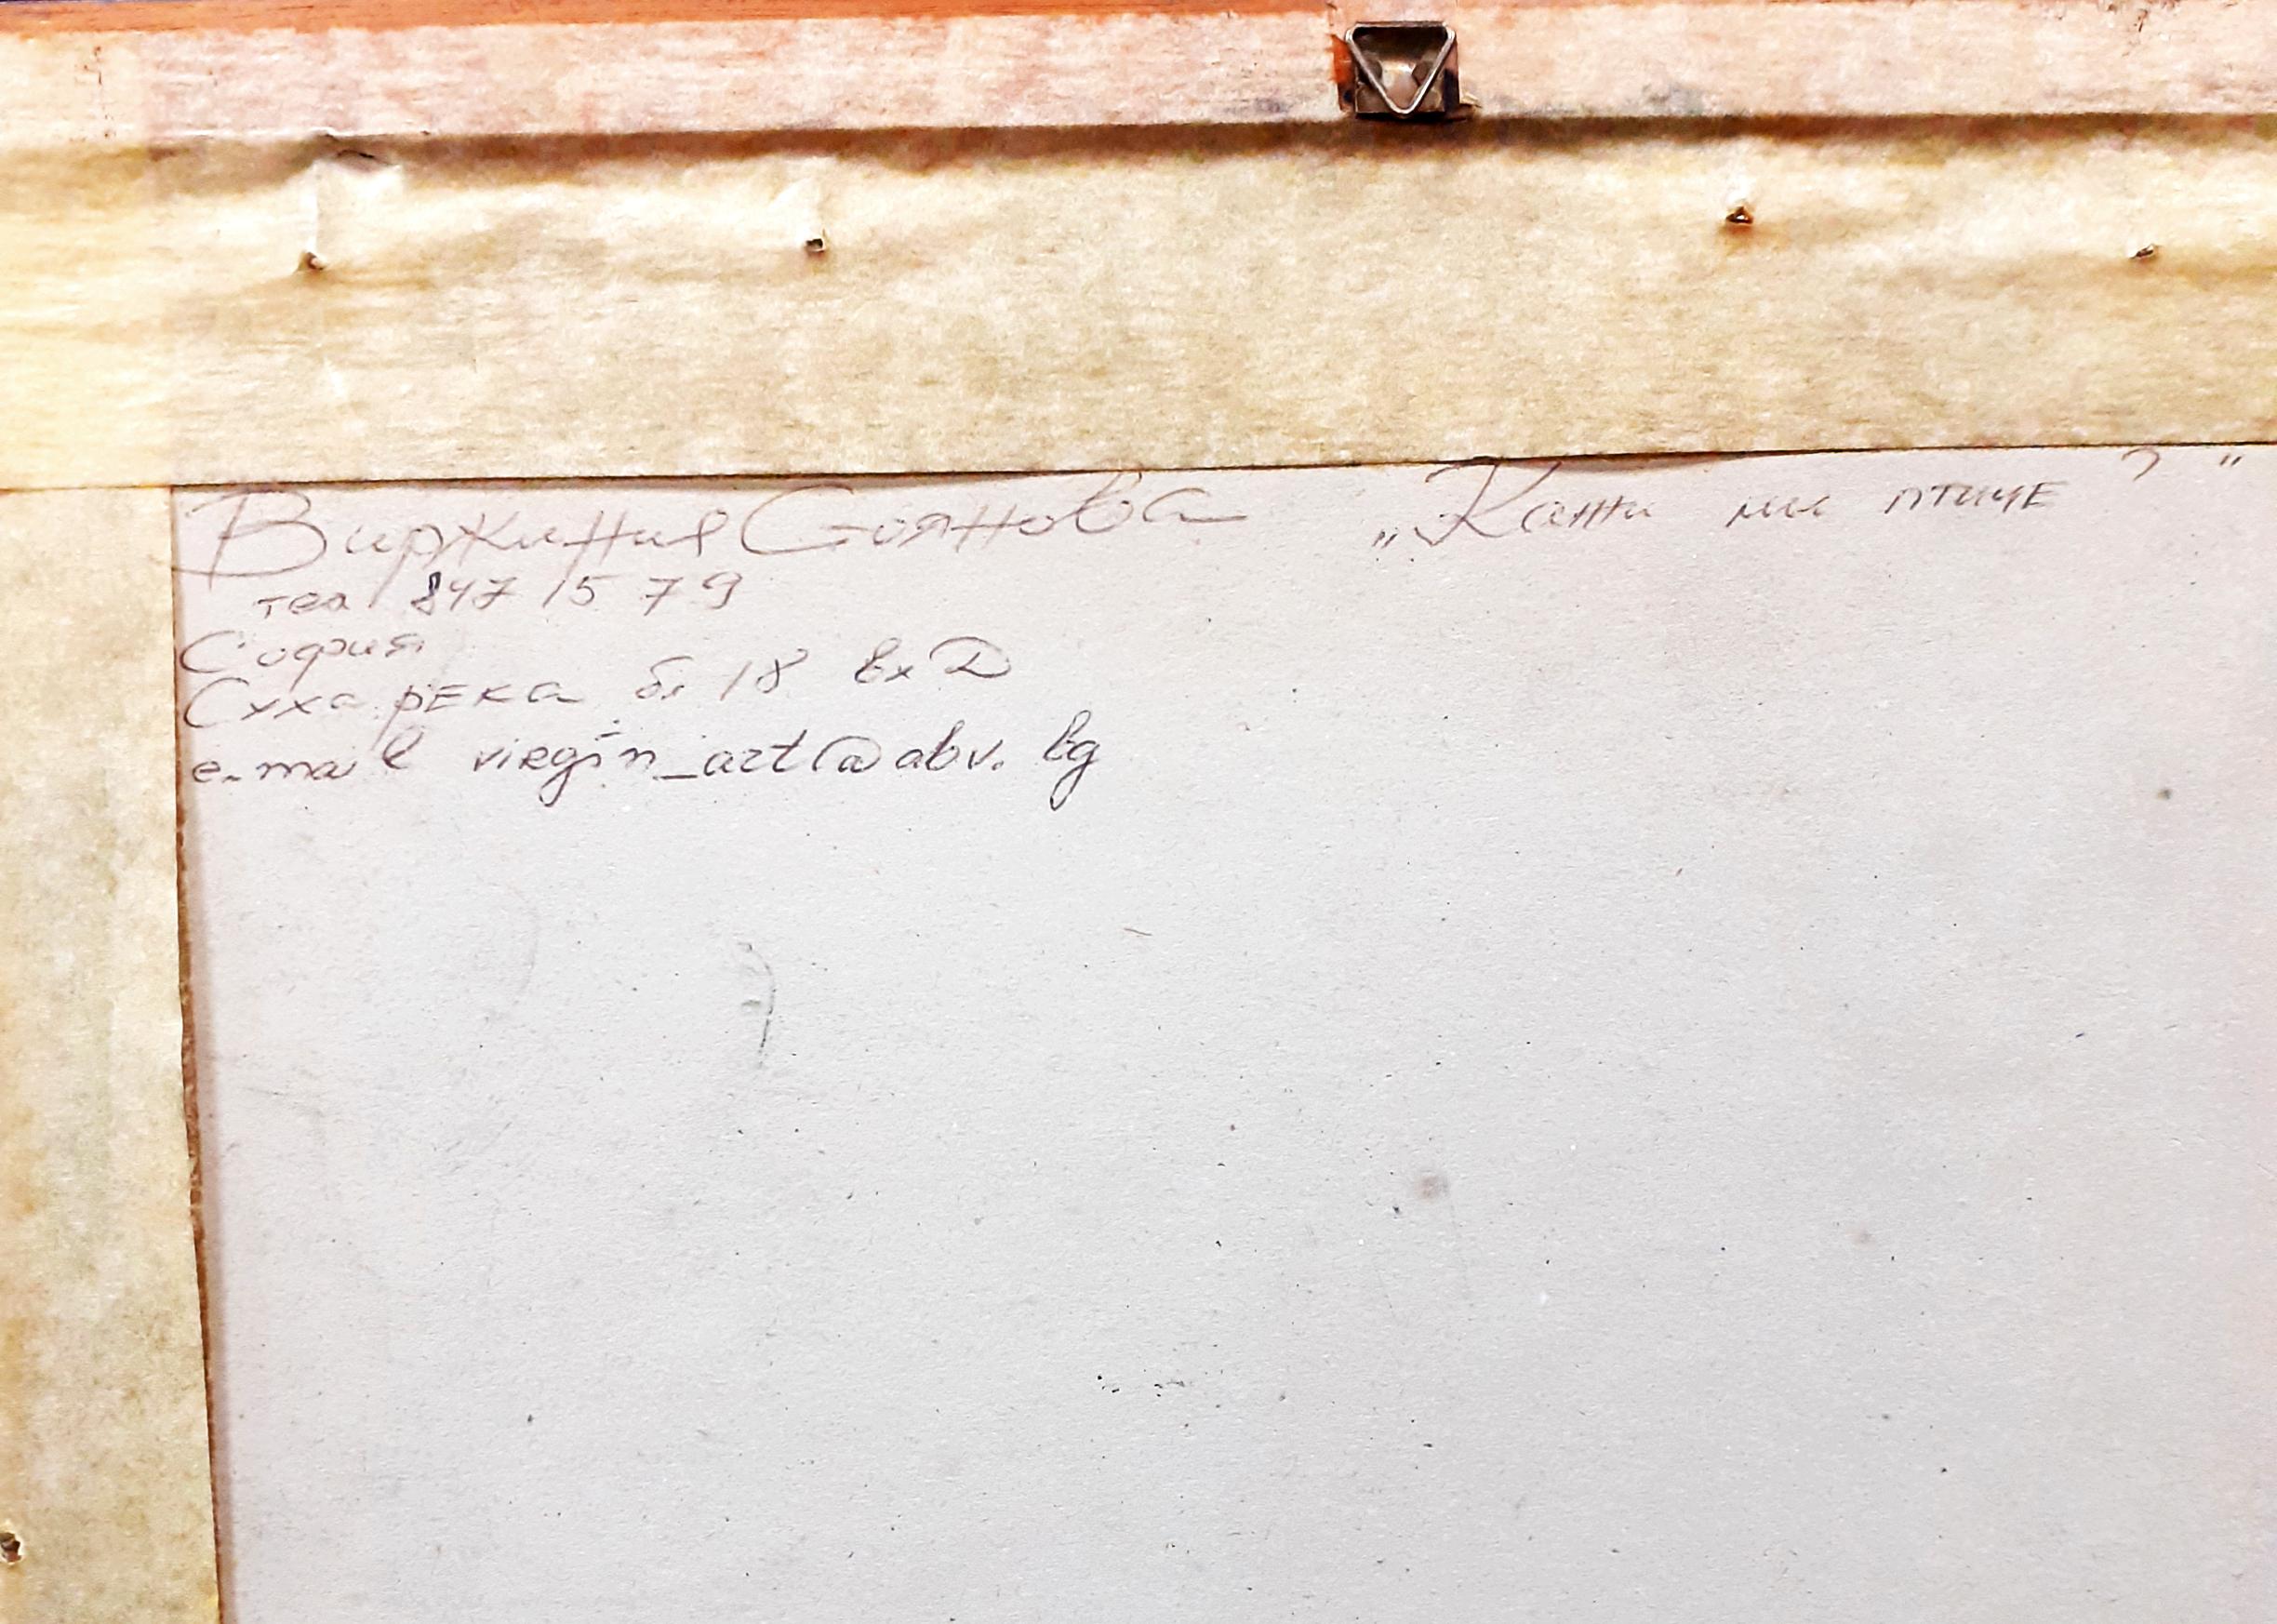 Виржиния Стоянова „Кажи ми птиче ?“
тел 847 15 79
София
Суха река бл 18 вх Д
e-mail virgin_art@abv.bg